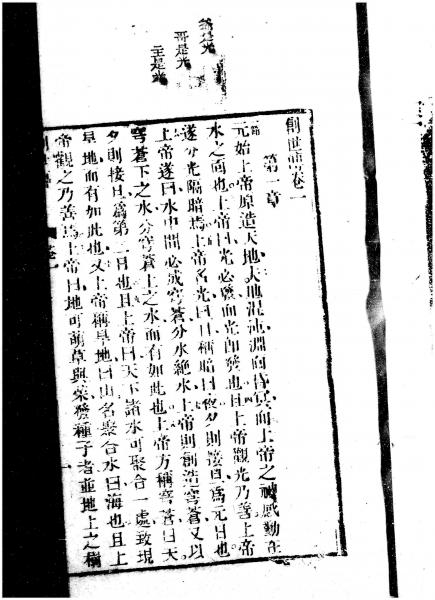 爺是光
哥是光
主是光
創世傳卷一
第一章
元始上帝原造天地夫地混沌淵面昏冥而上帝之神感動在
水之面也上帝曰光必發而光卽發也且上帝觀光乃善上帝
遂分光隔暗焉上帝名光曰日稱暗曰夜夕則接旦爲元日也
上帝遂曰水中間必成穹蒼分水絶水上帝則創造穹蒼又以
穹蒼下之水分穹蒼上之水而有如此也上帝方稱穹蒼曰天
夕則接旦爲第二日也且上帝曰天下諸水可聚合一處致現
旱地而有如此也又上帝稱旱地曰山名聚合水曰海也且上
帝觀之乃善焉上帝曰地可萌草與菜發種子者並地上之樹